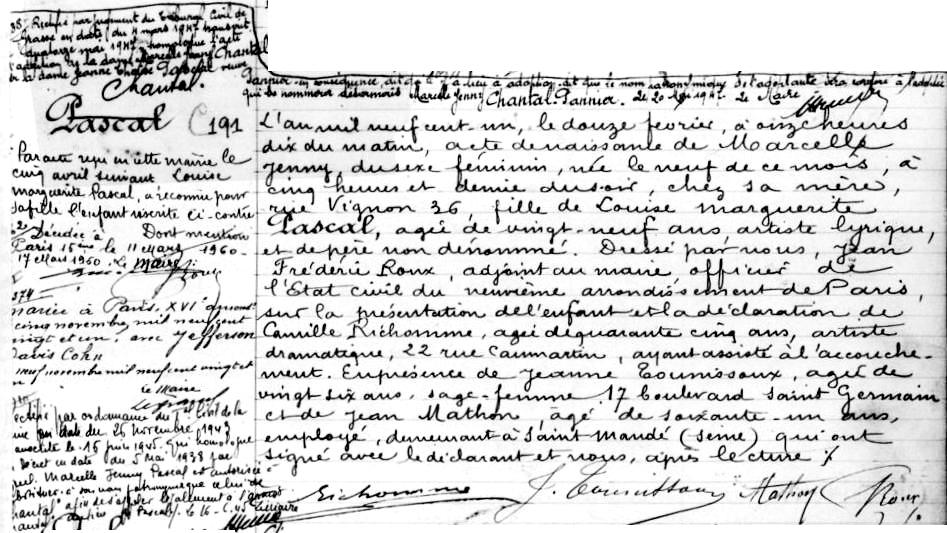 38. Rectifié par jugement du Tribunal Civil de
Grasse en date du 4 mars 1947 transcrit
quatorze mai 1947 homologue l'acte
d'adoption de la dame Marcelle Jenny Chantal
la dame Jeanne Pascal veuve
Chantal.
Pannier en conséquence, dit qu'il y a lieu à adoption, dit que le nom patronymique de l'adoptante sera conféré à l'adoptée
qui se nommera désormais Marcelle Jenny Chantal-Pannier. Le 20 1947. Le Maire
Pascal 191
Par acte reçu en cette mairie le
cinq avril suivant Louise
Marguerite Pascal, a reconnu pour
sa fille l'enfant inscrite ci-contre
Dont mention
2 Décédée à
Paris 15ème le 11 Mars 1960-
17 Mars 1960. Le Maire
374
mariée à Paris, XVI arrond
cinq novembre mil neuf cent
vingt et un, avec Jefferson
Davis Cohn
neuf novembre mil neuf cent vingt et
un
le Maire
rectifié par ordonnance du Pal Civil de la
Seine en date du 26 Novembre 1943
le 15 Juin 1945, qui homologue
Décret en date du 5 Mai 1938 par
lequel Marcelle Jenny Pascal est autorisée à
substituer à son nom patronymique celui de
Chantal afin de s'appeler légalement à l'avenir
Chantal au lieu de Pascal. le 16-
L'an mil neuf cent-un, le douze fevrier, à onze heures
dix du matin, acte de naissance de Marcelle
Jenny, du sexe féminin, née le neuf de ce mois, à
cinq heures et demie du soir, chez sa mère,
rue Vignon 36, fille de Louise Marguerite
Pascal, agée de vingt-neuf ans artiste lyrique,
et de père non dénommé. Dressé par nous, Jean
Frédéric Roux, adjoint au maire officier de
l'Etat civil du neuvième arrondissement de Paris,
sur la présentation de l'enfant et la déclaration de
Camille Richomme, agée de quarante cinq ans, artiste
dramatique, 22 rue Caumartin, ayant assisté à l'accouche-
ment. En présence de Jeanne Toumissoux, agée de
vingt six ans, sage-femme 17 boulevard Saint Germain
et de Jean Mathon, âgé de soixante-un ans,
employé, demeurant à Saint Mandé (Seine) qui ont
signé avec le déclarant et nous, après lecture ./.
Richomme J. Toumissoux Mathon Roux